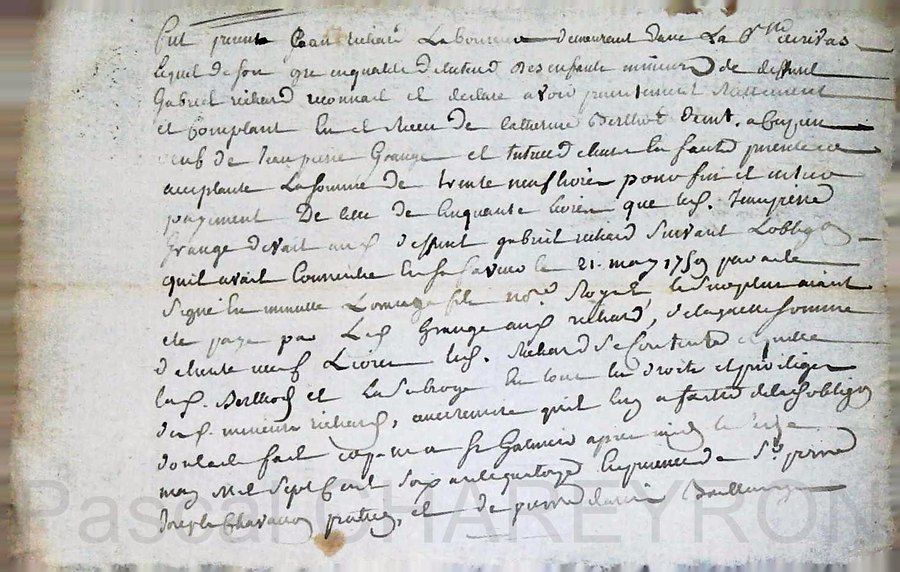 Fut présent Jean richard Laboureur demeurant dans La
lequel de son gré en qualité de tuteur des enfants mineurs de deffunt
Gabriel richard reconnait et déclare avoir présentement réellement
et comptant En et Receu de Catherine Berlhod
de Jean pierre Grange et tuteur présente et
acceptante La somme de trente neuf livres pour fin et entier
payement De celle de Cinquante livres que led. Jean pierre
Grange devait aud. deffunt gabriel richard suivant Lobbligon
quil avait Consentie En sa faveur le 21. may 1759 par acte
signé En minutte fils nore. Royal le surplus aiant
ete payé par Led. Grange aud. richard, de laquelle somme
de trente neuf Livres led. Richard se Contente et quitte
lad. Berlhod et La subroge En tous les droits et privileges
desd. mineurs richard, quil luy a faitte de lad. obbligon
dont acte fait a St Galmier apres midy le
may Mil Sept Cent soix ante quatorze En presence de Sr. pierre
Joseph Chavanon praticien, et de pierre Boullanger
Pascal CHAREYRON